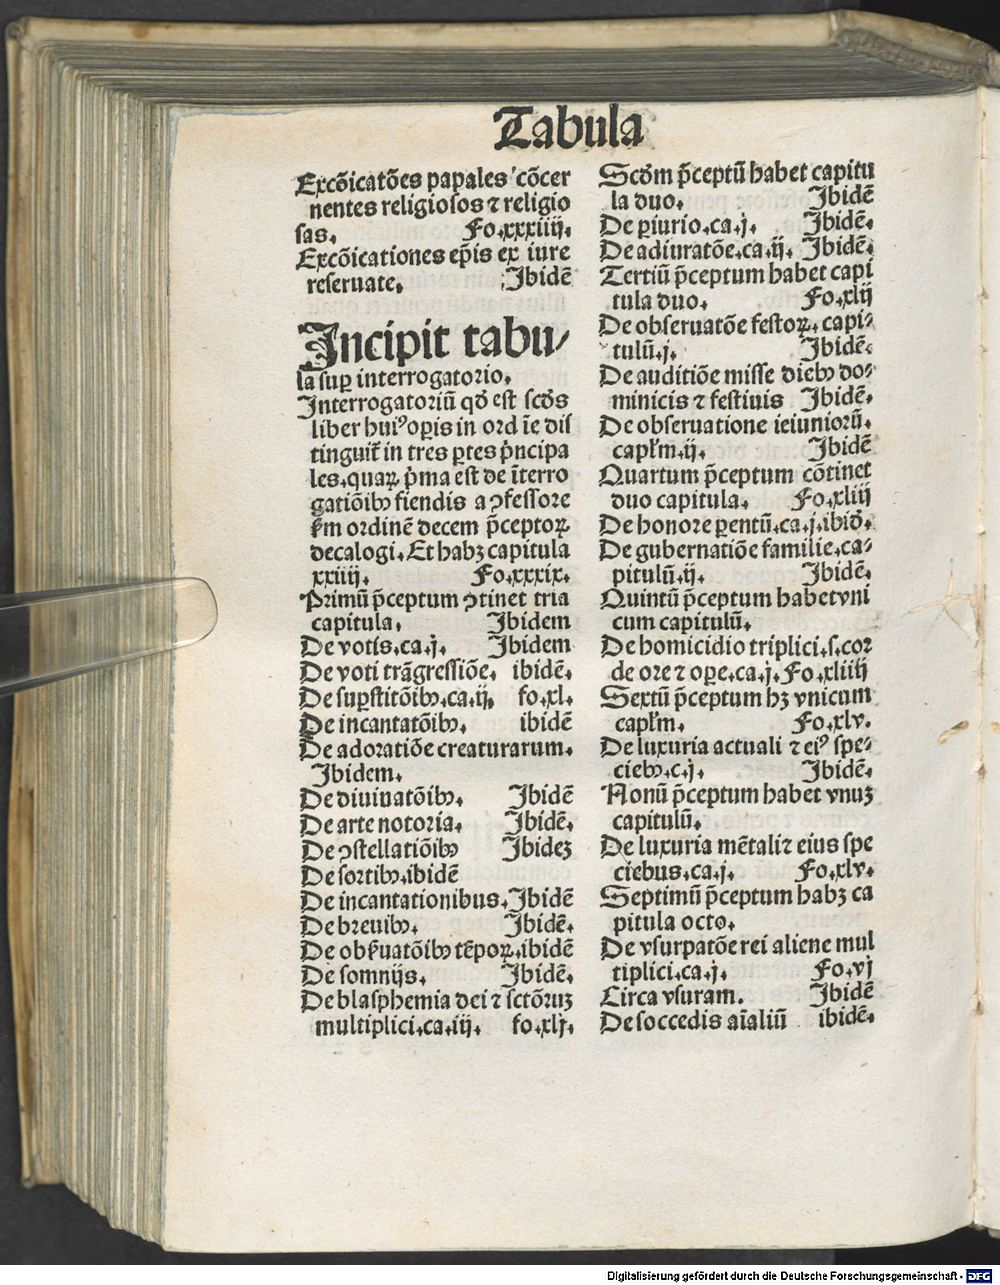 Tabula
Excõicatões papales cõcer
nentes religiosos ⁊ religio
sas. Fo.xxxiiij.
Excõicationes ep̃is ex iure
reseruate. Ibidẽ
Incipit tabu⸗
la suꝑ interrogatorio.
Interrogatoriũ qd̃ est scd̃s
liber huiꝰ oꝑis in ord ĩe dis
tinguit̃ in tres ꝑtes p̃ncipa
les.quaꝝ p̃ma est de ĩterro
gatiõibꝰ fiendis a ꝯfessore
ẜm ordinẽ decem p̃ceptoꝝ
decalogi. Et habꝫ capitula
xxiiij. Fo.xxxix.
Primũ p̃ceptum ꝯtinet tria
capitula. Ibidem
De votis.ca.j. Ibidem
De voti trãgressiõe. ibidẽ.
De suꝑstitõibꝰ.ca.ij. fo.xl.
De incantatõibꝰ. ibidẽ
De adoratiõe creaturarum.
Ibidem.
De diuinatõibꝰ. Ibidẽ
De arte notoria. Ibidẽ.
De ꝯstellatiõibꝰ Ibideꝫ
De sortibꝰ.ibidẽ
De incantationibus. Ibidẽ
De breuibꝰ. Ibidẽ.
De obẜuatõibꝰ tẽpoꝝ.ibidẽ
De somnijs. Ibidẽ.
De blasphemia dei ⁊ sctõruꝫ
multiplici.ca.iij. fo.xlj.
Scd̃m p̃ceptũ habet capitu
la duo. Ibidẽ
De ꝑiurio.ca.j. Ibidẽ.
De adiuratõe.ca.ij. Ibidẽ.
Tertiũ p̃ceptum habet capi
tula duo. Fo.xlij
De obseruatõe festoꝝ.capi⸗
tulũ.j. Ibidẽ.
De auditiõe misse diebꝰ do⸗
minicis ⁊ festiuis Ibidẽ.
De obseruatione ieiuniorũ.
capl̃m.ij. Ibidẽ
Quartum p̃ceptum cõtinet
duo capitula. Fo.xliij
De honore ꝑentũ.ca.j.ibid̃.
De gubernatiõe familie.ca⸗
pitulũ.ij. Ibidẽ.
Quintũ p̃ceptum habet vni
cum capitulũ.
De homicidio triplici.s.cor
de ore ⁊ oꝑe.ca.j. Fo.xliiij
Sextũ p̃ceptum hꝫ vnicum
capl̃m. Fo.xlv.
De luxuria actuali ⁊ eiꝰ spe⸗
ciebꝰ.c.j. Ibidẽ.
Nonũ p̃ceptum habet vnuꝫ
capitulũ.
De luxuria mẽtali ⁊ eius spe
ciebus.ca.j. Fo.xlv.
Septimũ p̃ceptum habꝫ ca
pitula octo.
De vsurpatõe rei aliene mul
tiplici.ca.j. Fo.vj
Circa vsuram. Ibidẽ
De soccedis aĩaliũ ibidẽ.
Digitalisierung gefördert durch die Deutsche Forschungsgemeinschaft - DFG